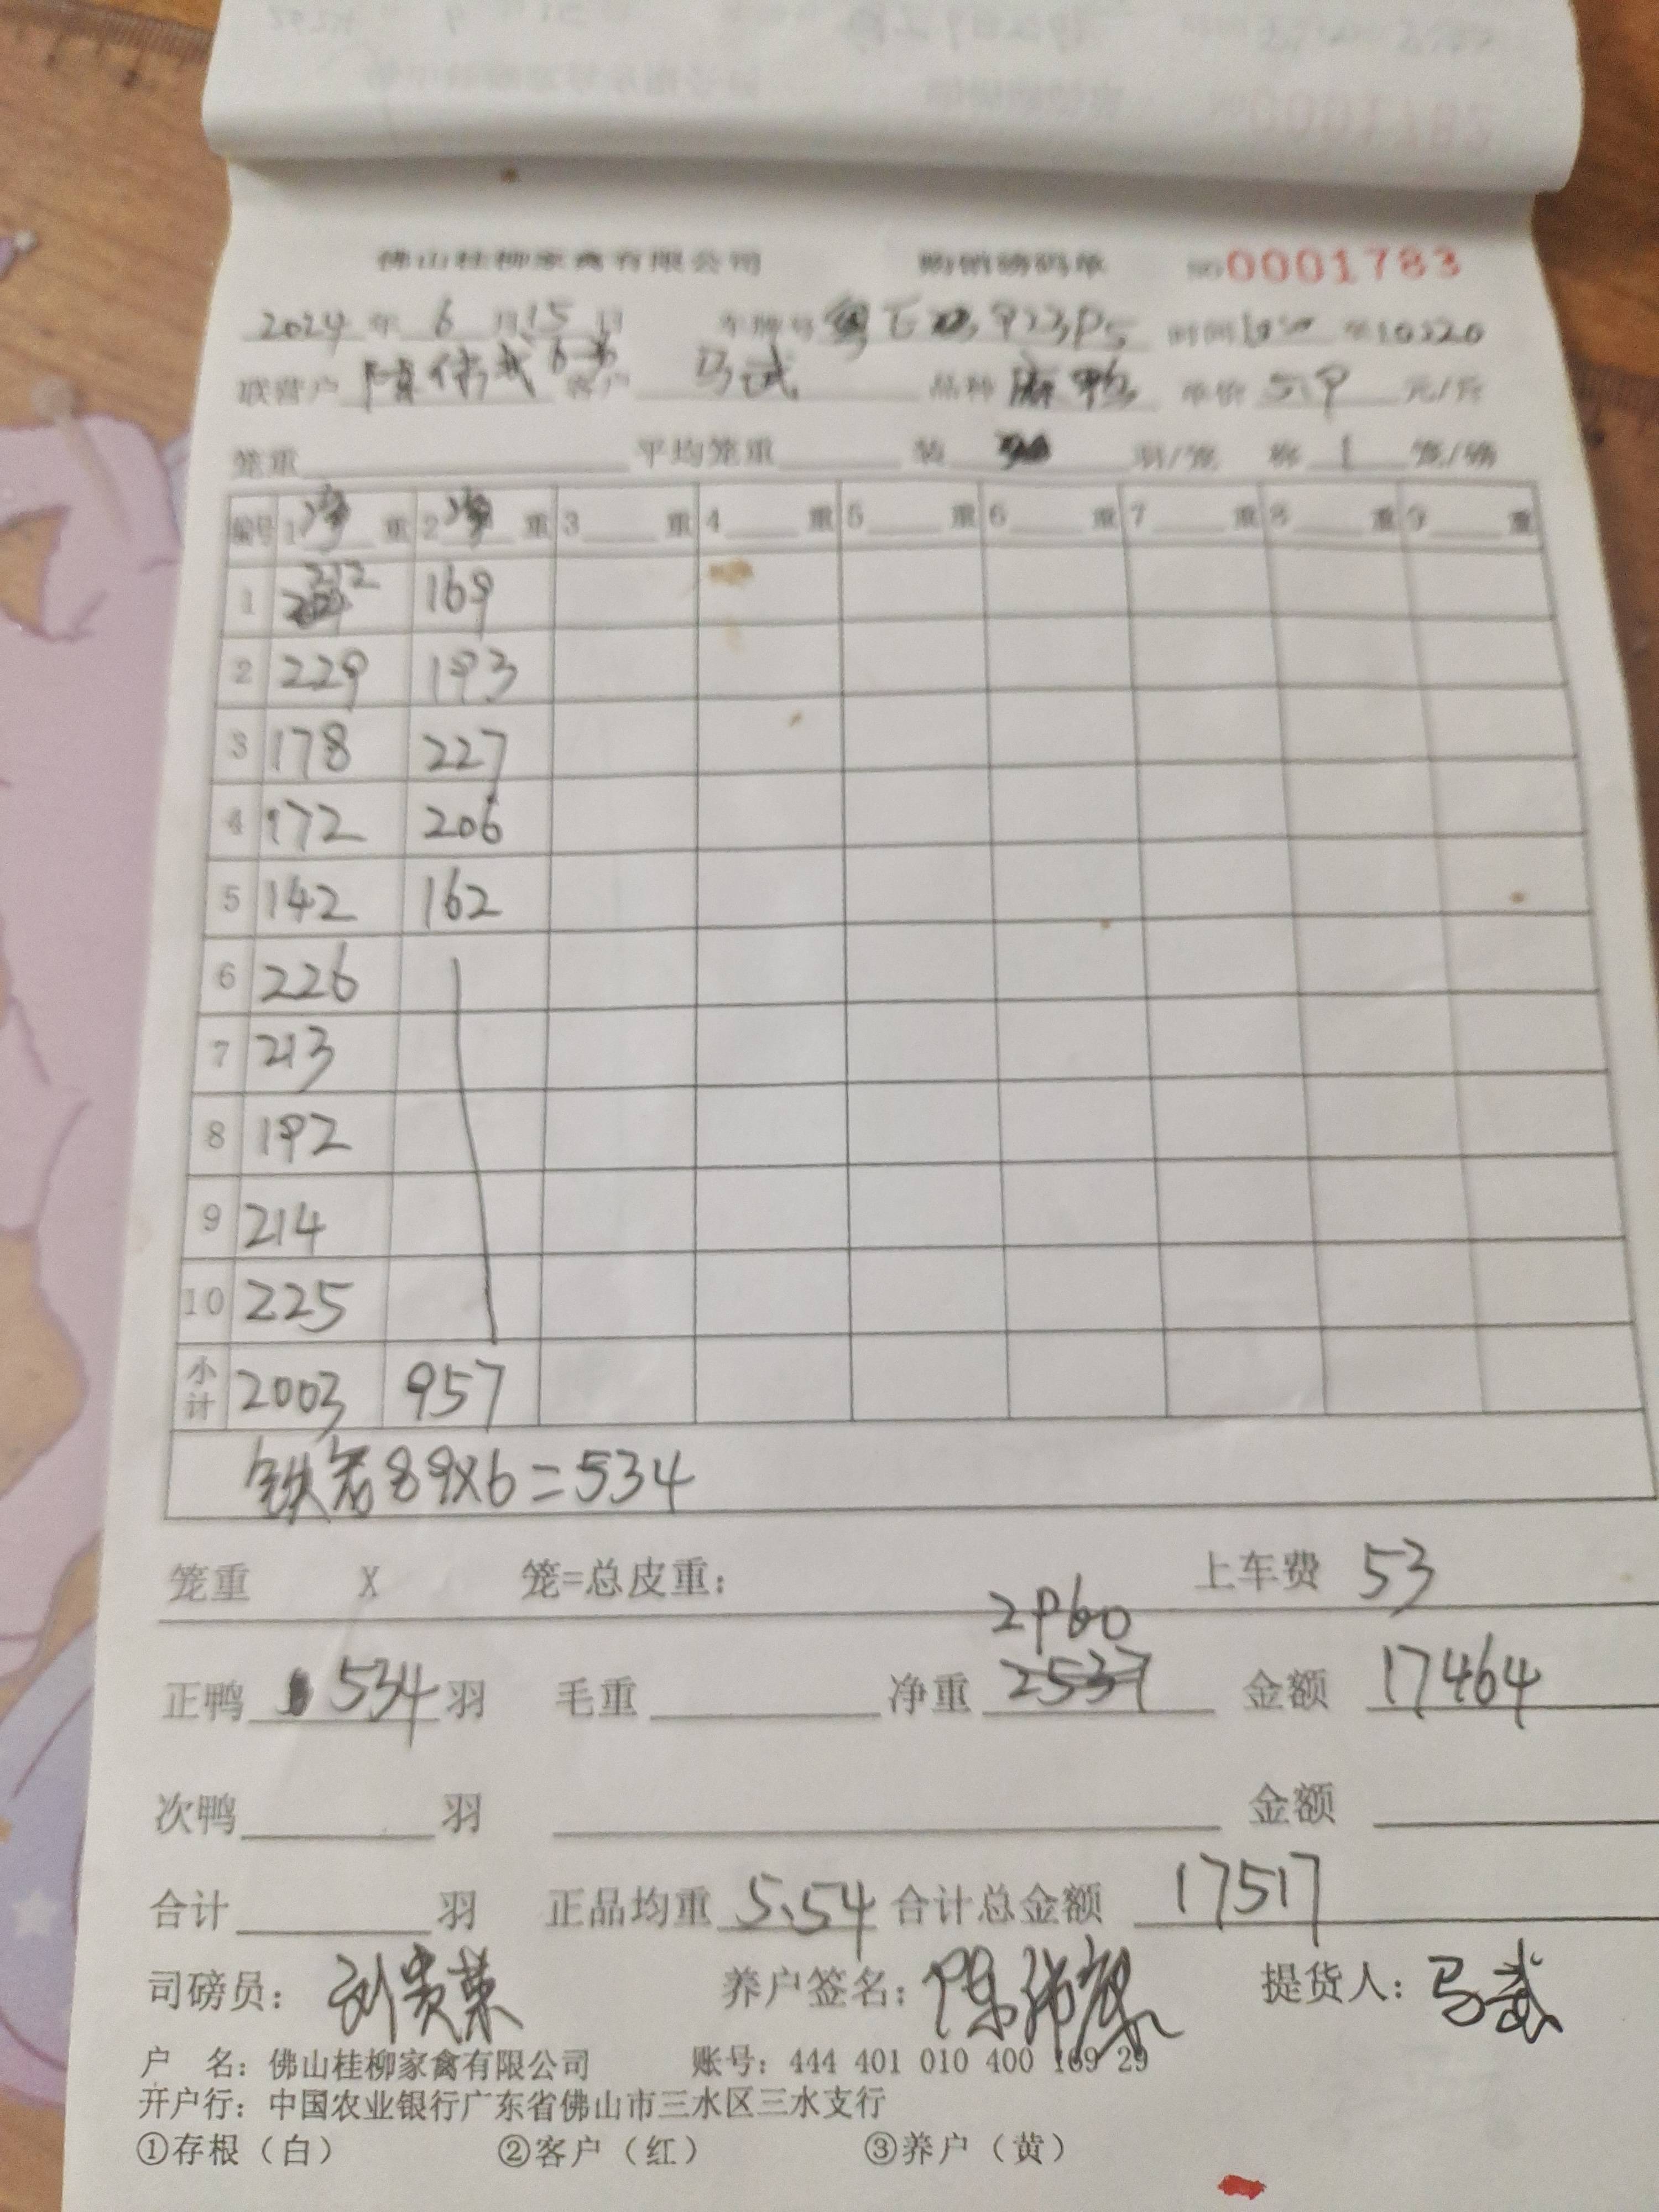 佛山桂柳家禽有限公司 购销磅码单 No 0001783
2024 年 6 月 15 日 车牌号 时间 至 10:20
联营户 陈伟 客户 马武 品种 麻鸭 单价 5.9 元/斤
笼重 平均笼重 装 羽/笼 称 1 笼/磅
编号 1 净 重 2 净 重 3 重 4 重 5 重 6 重 7 重 8 重 9 重
1 212 169
2 229 193
3 178 227
4 172 206
5 142 162
6 226
7 213
8 192
9 214
10 225
小计 2003 957
铁笼 89X6=534
笼重 X 笼=总皮重: 上车费 53
2960
正鸭 534 羽 毛重 净重 2537 金额 17464
次鸭 羽 金额
合计 羽 正品均重 5.54 合计总金额 17517
司磅员: 刘贵荣 养户签名: 陈 提货人: 马武
户 名: 佛山桂柳家禽有限公司 账号: 444 401 010 400 169 29
开户行: 中国农业银行广东省佛山市三水区三水支行
①存根（白） ②客户（红） ③养户（黄）